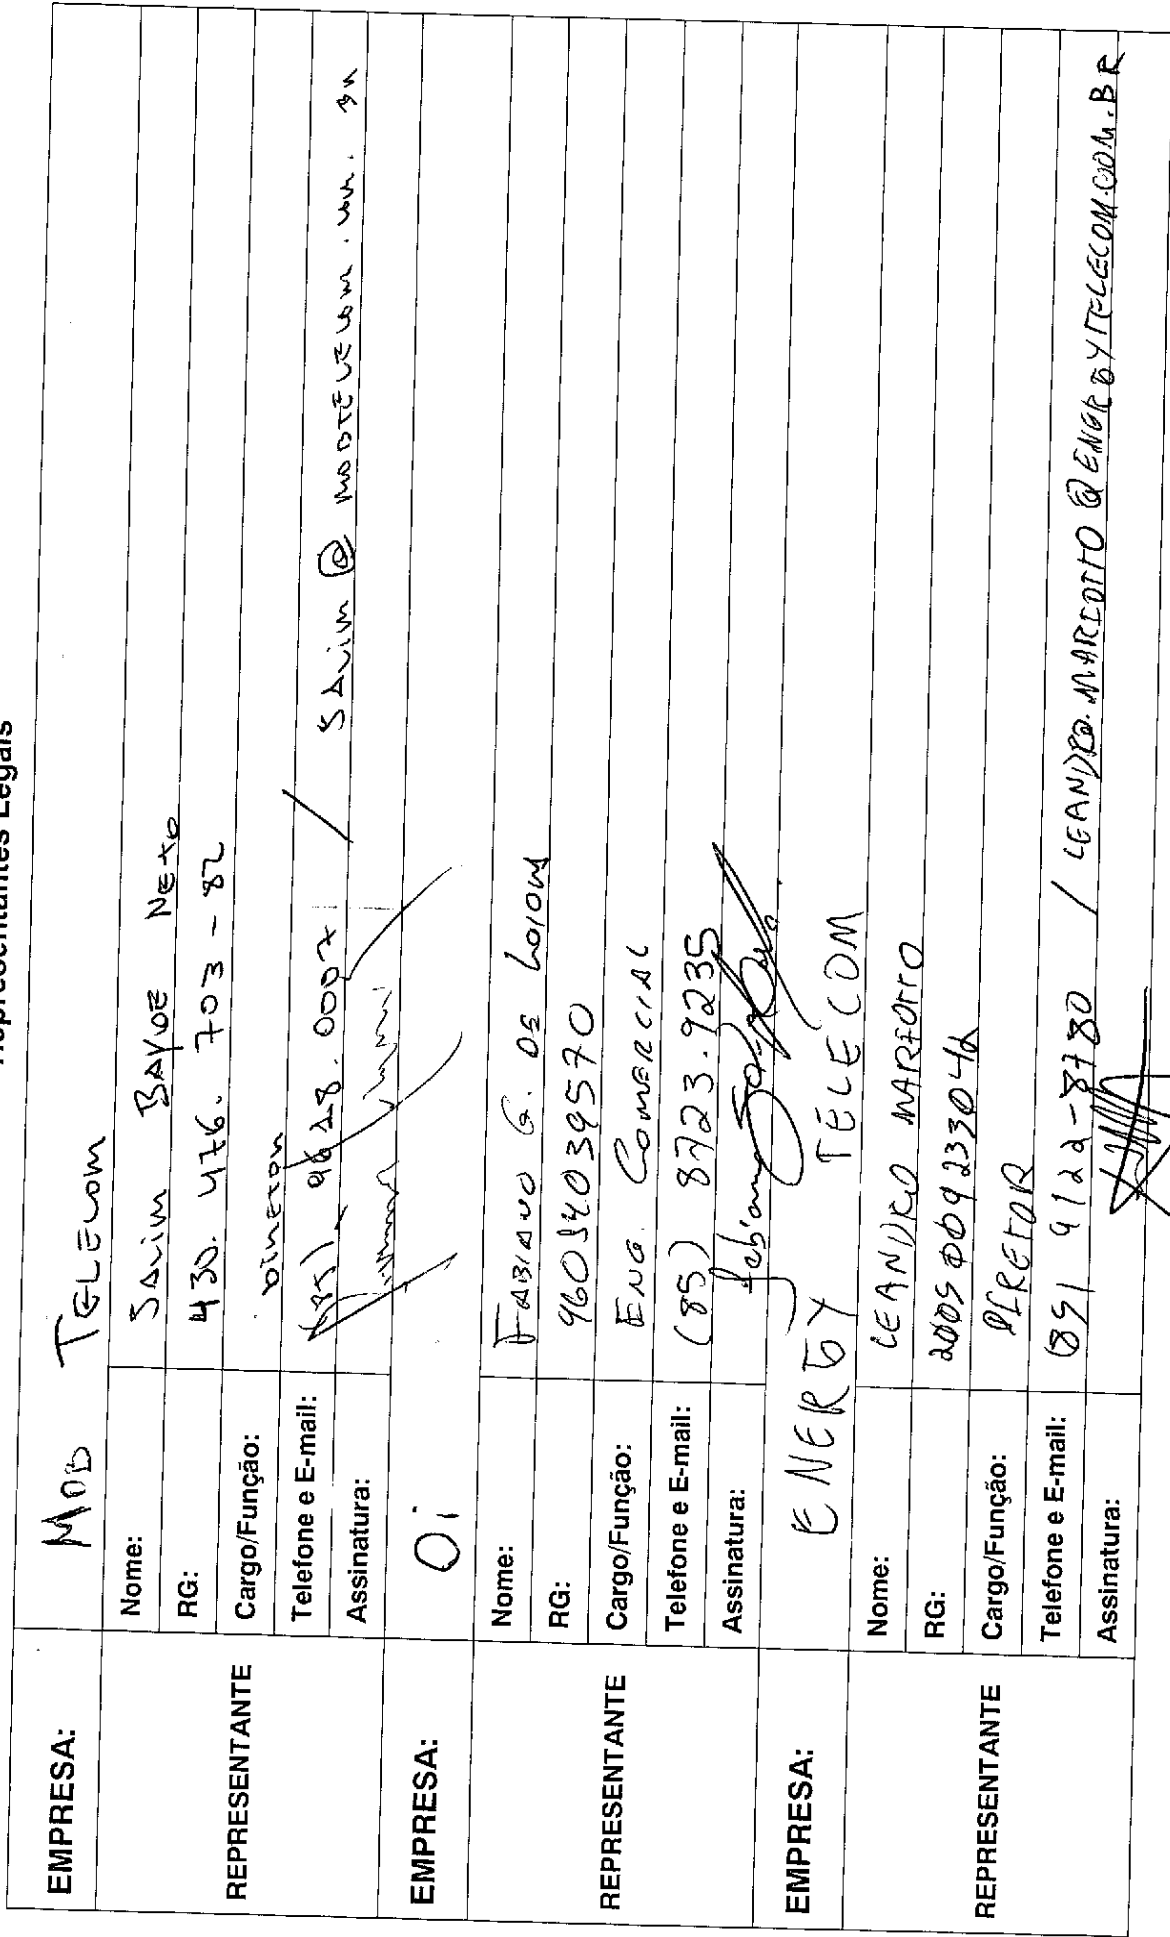 Representantes Legais
EMPRESA: MOB TELECOM
REPRESENTANTE
Nome: SALIM BAYDE NETO
RG: 430.476.703-82
Cargo/Função: DIRETOR
Telefone e E-mail: (85) - 9628.0007 / SALIM@MOBTELECOM.COM.BR
Assinatura:
EMPRESA: Oi
REPRESENTANTE
Nome: FABIANO G. DE
RG: 96034039570
Cargo/Função: ENG. COMERCIAL
Telefone e E-mail: (85) 8723.9235
Assinatura: Fabiano
EMPRESA: ENERGY TELECOM
REPRESENTANTE
Nome: LEANDRO MARIOTTO
RG: 2005009233042
Cargo/Função: DIRETOR
Telefone e E-mail: (85) 9122-8780 / LEANDRO.MARIOTTO@ENERGYTELECOM.COM.BR
Assinatura: